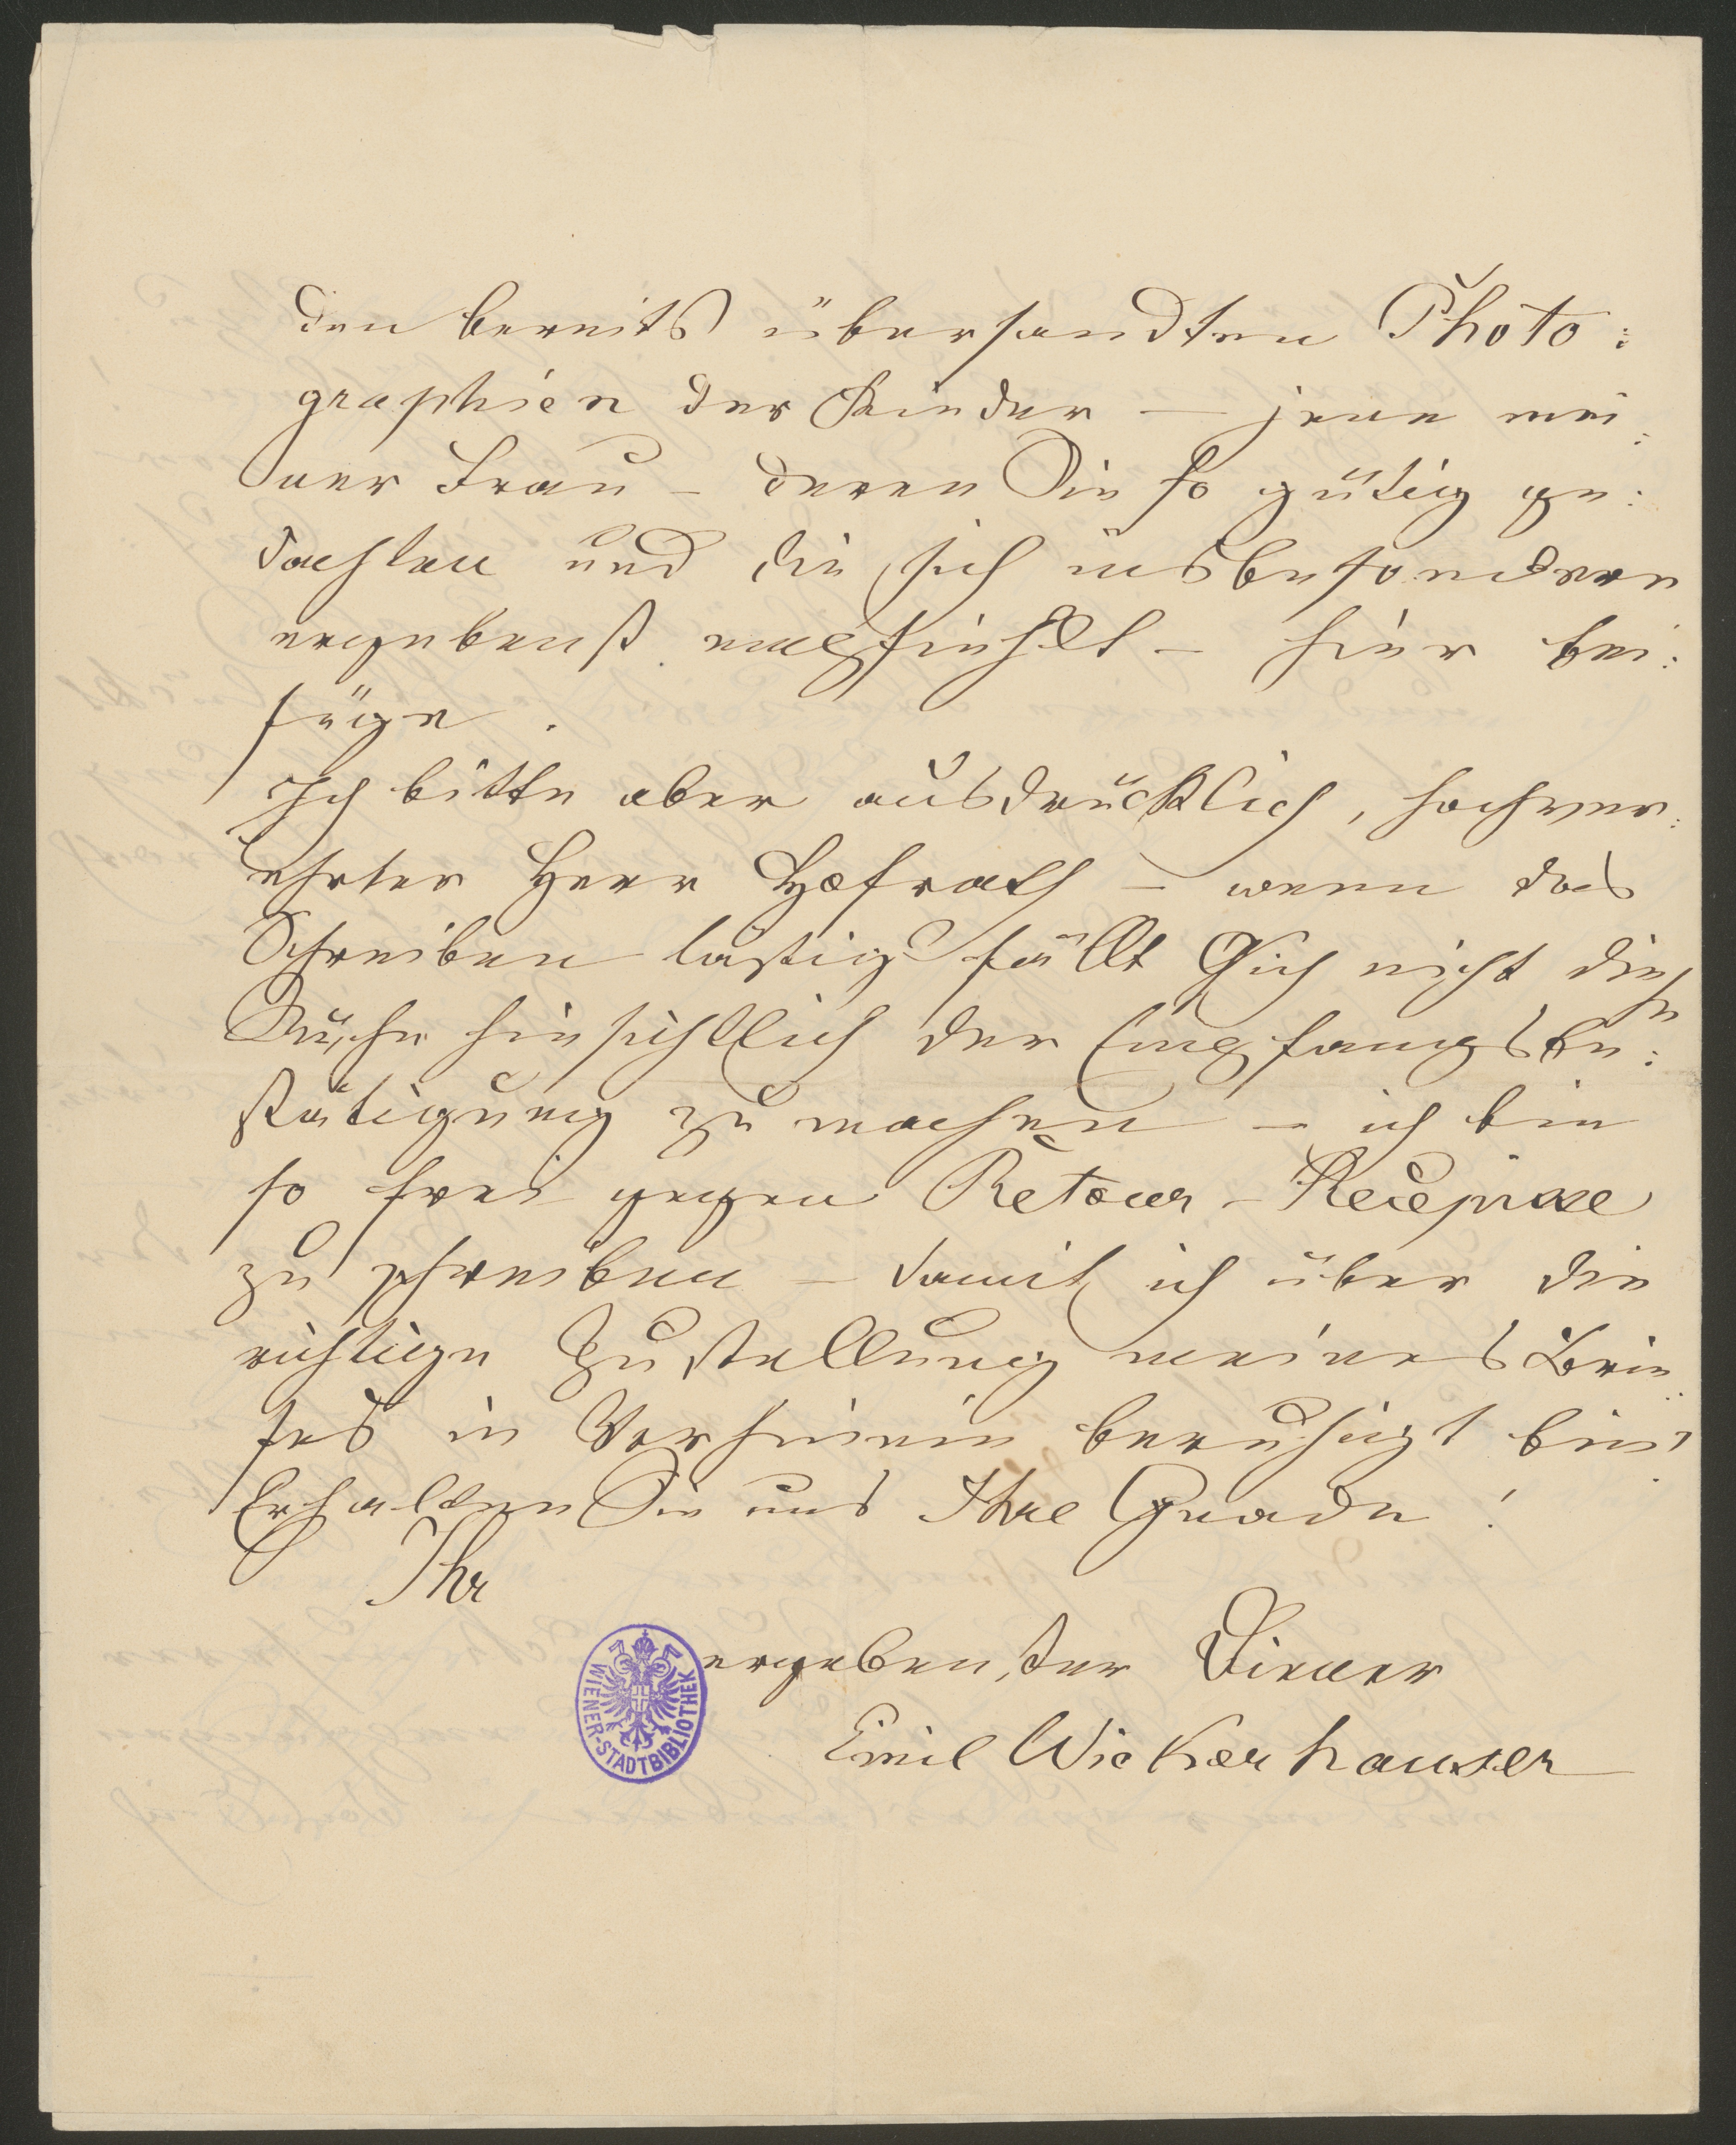 den bereits übersandten Photo:
graphien der Kinder — jene mei:
ner Frau – deren Sie so gütig ge:
dachten und die sich insbesondere
ergebenst empfiehlt – hier bei:
füge.
Ich bitte aber ausdrücklich, hochver:
ehrter Herr Hofrath – wenn das
Schreiben lästig fällt Sich nicht die
Mühe hinsichtlich der Empfangsbe:
stätigung zu machen – ich bin
so frei gegen Retour-Recepisse
zu schreiben – damit ich über die
richtige Zustellung meines Brie:
fes in Vorhinein beruhigt bin.
Erhalten Sie uns Ihre Gnade!
Ihr
ergebenster Diener
Emil Wickerhauser
WIENER-STADTBIBLIOTHEK